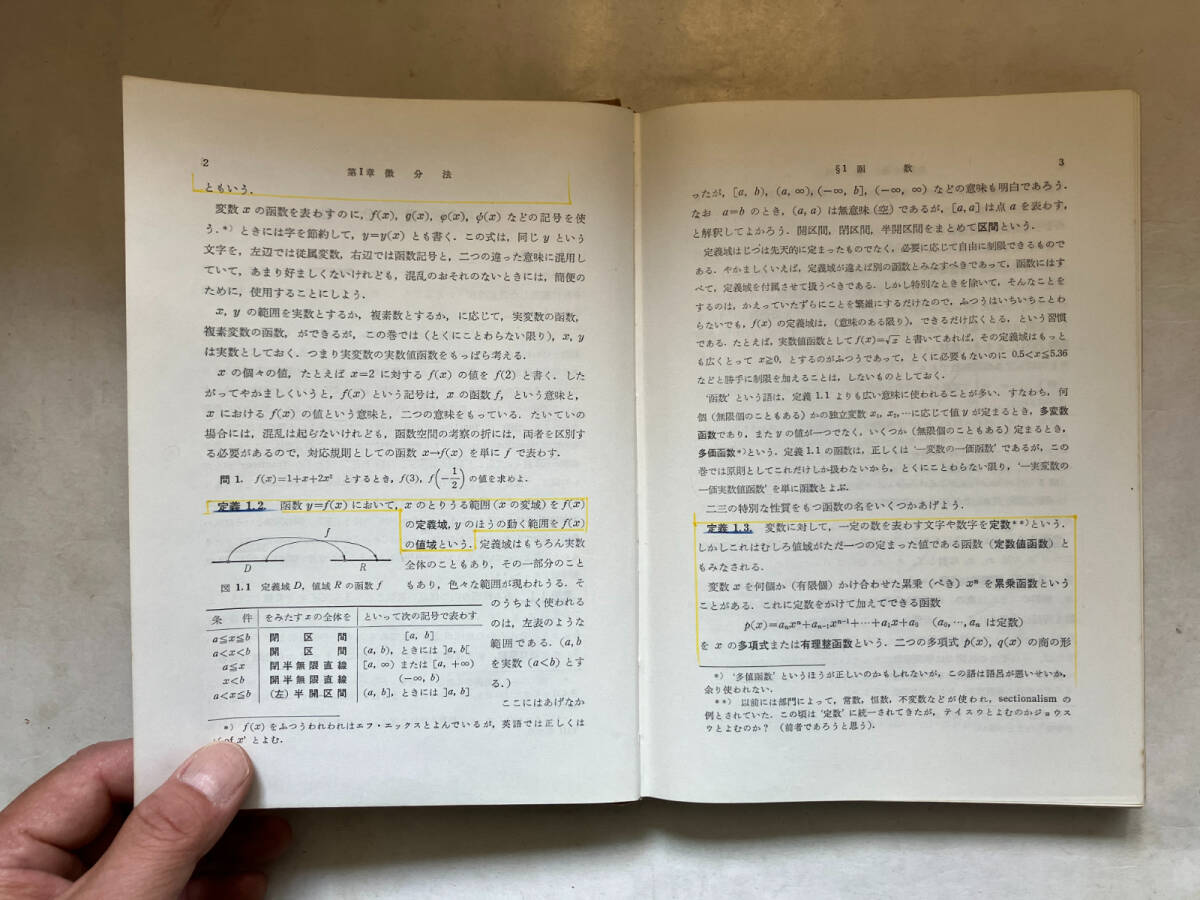 2
第I章 微分法
ともいう.
変数 x の函数を表わすのに, f(x), g(x), φ(x), ψ(x) などの記号を使
う.*) ときには字を節約して, y=y(x) とも書く. この式は, 同じ y という
文字を, 左辺では従属変数, 右辺では函数記号と, 二つの違った意味に混用し
ていて, あまり好ましくないけれども, 混乱のおそれのないときには, 簡便の
ために, 使用することにしよう.
x, y の範囲を実数とするか, 複素数とするか, に応じて, 実変数の函数,
複素変数の函数, ができるが, この巻では (とくにことわらない限り), x, y
は実数としておく. つまり実変数の実数値函数をもっぱら考える.
x の個々の値, たとえば x=2 に対する f(x) の値を f(2) と書く. した
がってやかましくいうと, f(x) という記号は, x の函数 f, という意味と,
x における f(x) の値という意味と, 二つの意味をもっている. たいていの
場合には, 混乱は起らないけれども, 函数空間の考察の折には, 両者を区別す
る必要があるので, 対応規則としての函数 x→f(x) を単に f で表わす.
問 1. f(x)=1+x+2x² とするとき, f(3), f(-1/2) の値を求めよ.
定義 1.2. 函数 y=f(x) において, x のとりうる範囲 (x の変域) を f(x)
の定義域, y のほうの動く範囲を f(x)
の値域という. 定義域はもちろん実数
全体のこともあり, その一部分のこと
もあり, 色々な範囲が現われうる. そ
f
D R
図 1.1 定義域 D, 値域 R の函数 f
のうちよく使われる
のは, 左表のような
範囲である. (a, b
を実数 (a<b) とす
る.)
ここにはあげなか
条件 をみたす x の全体を といって次の記号で表わす
a≦x≦b 閉区間 [a, b]
a<x<b 開区間 (a, b), ときには ]a, b[
a≦x 閉半無限直線 [a, ∞) または [a, +∞)
x<b 開半無限直線 (-∞, b)
a<x≦b (左) 半開区間 (a, b], ときには ]a, b]
*) f(x) をふつうわれわれはエフ・エックスとよんでいるが, 英語では正しくは
of x' とよむ.
§1 函数
3
ったが, [a, b), (a, ∞), (-∞, b], (-∞, ∞) などの意味も明白であろう.
なお a=b のとき, (a, a) は無意味 (空) であるが, [a, a] は点 a を表わす,
と解釈してよかろう. 開区間, 閉区間, 半開区間をまとめて区間という.
定義域はじつは先天的に定まったものでなく, 必要に応じて自由に制限できるもので
ある. やかましくいえば, 定義域が違えば別の函数とみなすべきであって, 函数にはす
べて, 定義域を付属させて扱うべきである. しかし特別なときを除いて, そんなことを
するのは, かえっていたずらにことを繁雑にするだけなので, ふつうはいちいちことわ
らないでも, f(x) の定義域は, (意味のある限り), できるだけ広くとる, という習慣
である. たとえば, 実数値函数として f(x)=√x と書いてあれば, その定義域はもっと
も広くとって x≧0, とするのがふつうであって, とくに必要もないのに 0.5<x≦5.36
などと勝手に制限を加えることは, しないものとしておく.
'函数' という語は, 定義 1.1 よりも広い意味に使われることが多い. すなわち, 何
個 (無限個のこともある) かの独立変数 x₁, x₂, …に応じて値 y が定まるとき, 多変数
函数であり, また y の値が一つでなく, いくつか (無限個のこともある) 定まるとき,
多価函数*)という. 定義 1.1 の函数は, 正しくは '一変数の一価函数' であるが, この
巻では原則としてこれだけしか扱わないから, とくにことわらない限り, '一実変数の
一価実数値函数' を単に函数とよぶ.
二三の特別な性質をもつ函数の名をいくつかあげよう.
定義 1.3. 変数に対して, 一定の数を表わす文字や数字を定数**)という.
しかしこれはむしろ値域がただ一つの定まった値である函数 (定数値函数) と
もみなされる.
変数 x を何個か (有限個) かけ合わせた累乗 (べき) xⁿ を累乗函数という
ことがある. これに定数をかけて加えてできる函数
p(x)=aₙxⁿ+aₙ₋₁xⁿ⁻¹+⋯+a₁x+a₀ (a₀, ⋯, aₙ は定数)
を x の多項式または有理整函数という. 二つの多項式 p(x), q(x) の商の形
*) '多値函数' というほうが正しいのかもしれないが, この語は語呂が悪いせいか,
余り使われない.
**) 以前には部門によって, 常数, 恒数, 不変数などが使われ, sectionalism の
例とされていた. この頃は '定数' に統一されてきたが, テイスウとよむのかジョウス
ウとよむのか? (前者であろうと思う).